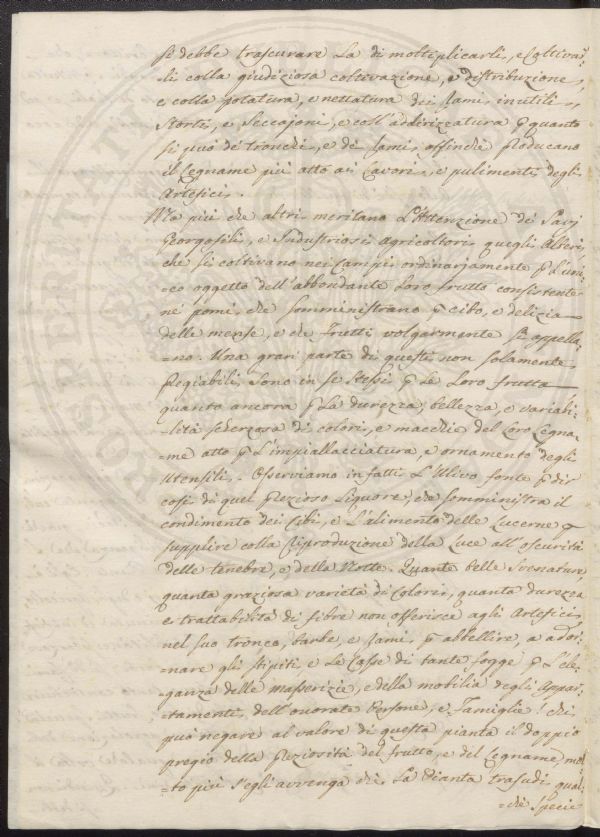 si debbe trascurare La di moltiplicarli, e Coltivar=
=li colla giudiziosa coltivazione, e distribuzione,
e colla potatura, e nettatura dei Rami inutili,
Storti, e Seccajoni, e coll'addirizzatura p quanto
si può de' tronchi, e de' Rami, affinchè producano
il Legname più atto ai Lavori, e pulimenti degli
Artefici.
Ma più che altri meritano L'Attenzione de' Savj
Georgofili, e Industriosi agricoltori quegli Alberi,
che si coltivano nei Campi ordinariamente p L'uni=
=co oggetto dell'abbondante Loro frutto consistente
ne' pomi, che somministrano p cibo, e delizia
delle mense, e che Frutti volgarmente si appella=
=no. Una gran parte di questi non solamente
Pregiabili Sono in se stessi p Le Loro frutta
quanto ancora p La durezza, bellezza, e variabi=
=lità scherzosa di colori, e macchie del Loro Legna=
=me atto p L'impiallacciatura, e ornamento degli
Utensili. Osserviamo infatti L'Ulivo fonte p dir
così di quel Prezioso Liquore, che somministra il
condimento dei Cibi, e L'alimento delle Lucerne p
supplire colla Riproduzione della Luce all'oscurità
delle tenebre, e della Notte. Quante belle Svenature,
quanta graziosa varietà di Colori, quanta durezza
e trattabilità di fibre non offerisce agli Artefici
nel suo tronco, barbe, e Rami, p abbellire, e ador=
=nare gli Stipiti e Le Casse di tante fogge p L'ele=
=ganza delle masserizie, e della mobilia degli Appar=
=tamenti dell'onorate Persone, e Famiglie! chi
può negare al valore di questa pianta il doppio
pregio della Preziosità del frutto, e del Legname, mol=
=to più s'egli avvenga che La Pianta trasudi qual=
=che Specie